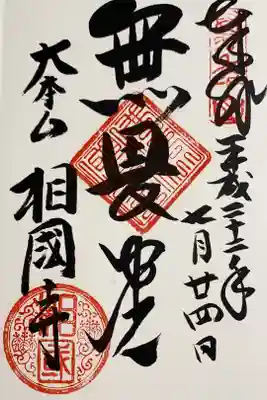 奉拝 平成二十二年
七月廿四日
無畏堂
大本山
相國寺